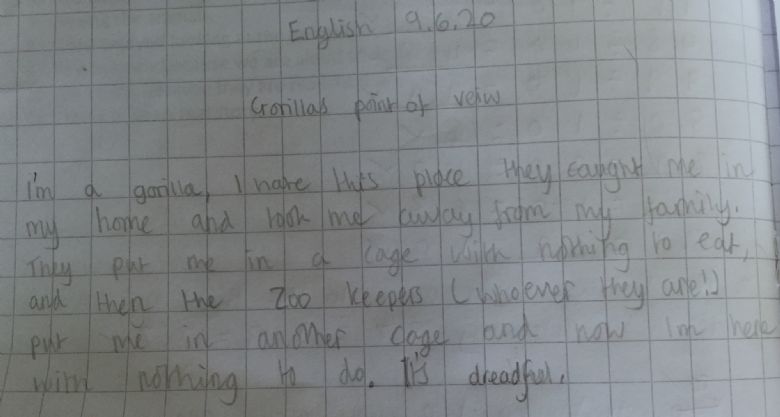 English 9.6.20
Gorillas point of veiw
I'm a gorilla, I hate this place they caught me in
my home and took me away from my family.
They put me in a cage with nothing to eat,
and then the zoo keepers (whoever they are!)
put me in another cage and now im here
with nothing to do. It's dreadful.